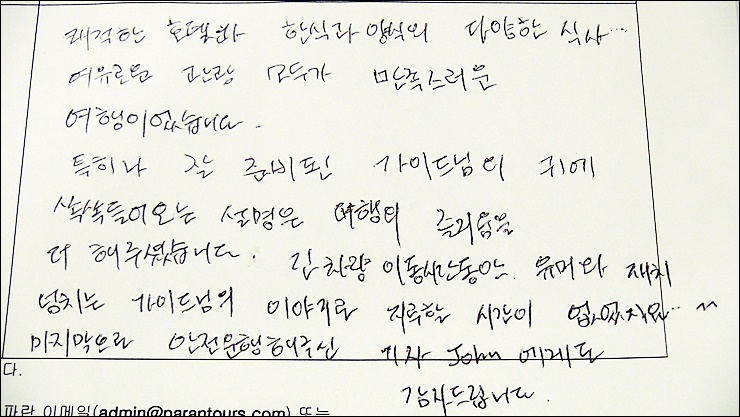 쾌적한 호텔과 한식과 양식의 다양한 식사...
여유로운 관광 모두가 만족스러운
여행이었습니다.
특히나 잘 준비된 가이드님의 귀에
쏙쏙들어오는 설명은 여행의 즐거움을
더 해주셨습니다. 긴 차량 이동시간동안. 유머와 재치
넘치는 가이드님의 이야기로 지루할 시간이 없었지요.. ~
마지막으로 안전운행해주신 기사 John 에게도
감사드립니다.
다.
파란 이메일(admin@parantours.com) 또는